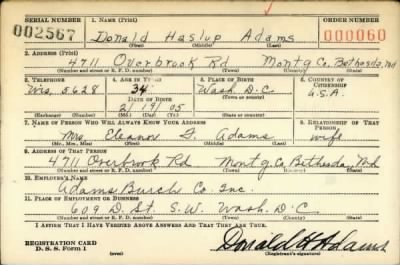 SERIAL NUMBER 1. NAME (Print) ORDER NUMBER
002567 Donald Haslup Adams 000060
(First) (Middle) (Last)
2. ADDRESS (Print)
4711 Overbrook Rd Montg Co. Bethesda, Md
(Number and street or R. F. D. number) (Town) (County) (State)
3. TELEPHONE 4. AGE IN YEARS 5. PLACE OF BIRTH 6. COUNTRY OF CITIZENSHIP
Wis. 5628 34 Wash. D.C. U.S.A.
DATE OF BIRTH (Town or county)
2/19/05
(Exchange) (Number) (Mo.) (Day) (Yr.) (State or country)
7. NAME OF PERSON WHO WILL ALWAYS KNOW YOUR ADDRESS 8. RELATIONSHIP OF THAT PERSON
Mrs. Eleanor F. Adams wife
(Mr., Mrs., Miss) (First) (Middle) (Last)
9. ADDRESS OF THAT PERSON
4711 Overbrook Rd Montg Co. Bethesda Md
(Number and street or R. F. D. number) (Town) (County) (State)
10. EMPLOYER'S NAME
Adams Burch Co. Inc.
11. PLACE OF EMPLOYMENT OR BUSINESS
609 D. St. S.W. Wash. D.C
(Number and street or R. F. D. number) (Town) (County) (State)
I AFFIRM THAT I HAVE VERIFIED ABOVE ANSWERS AND THAT THEY ARE TRUE.
REGISTRATION CARD
D. S. S. Form 1
Donald H Adams
(Registrant's signature)